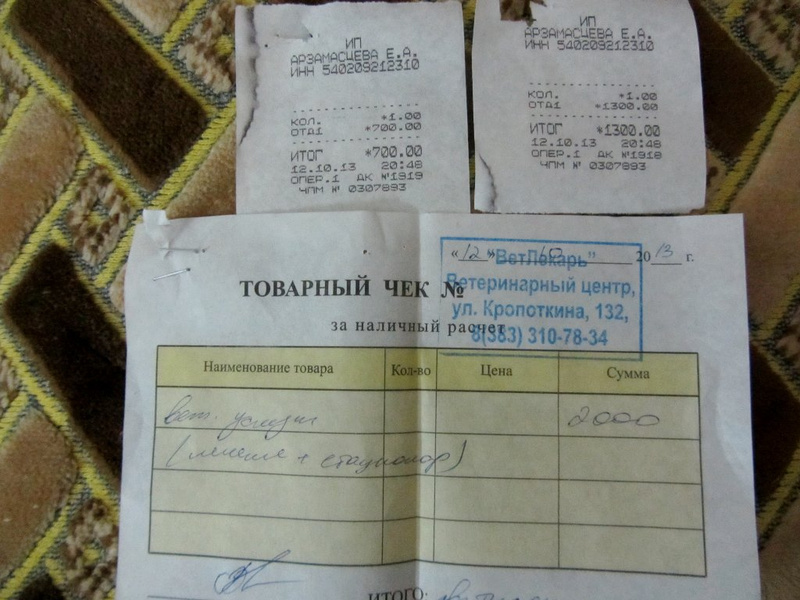 ИП
АРЗАМАСЦЕВА Е.А.
ИНН 540209212310
КОЛ. *1.00
ОТД1 *700.00
ИТОГ *700.00
12.10.13 20:48
ОПЕР.1 ДК №1919
ЧПМ № 0307893
ИП
АРЗАМАСЦЕВА Е.А.
ИНН 540209212310
КОЛ. *1.00
ОТД1 *1300.00
ИТОГ *1300.00
12.10.13 20:48
ОПЕР.1 ДК №1918
ЧПМ № 0307893
«12» 10 2013 г.
"ВетЛекарь"
Ветеринарный центр,
ул. Кропоткина, 132,
8(383) 310-78-34
ТОВАРНЫЙ ЧЕК №
за наличный расчет
Наименование товара Кол-во Цена Сумма
вет. услуги 2000
(лечение + стационар)
ИТОГО: